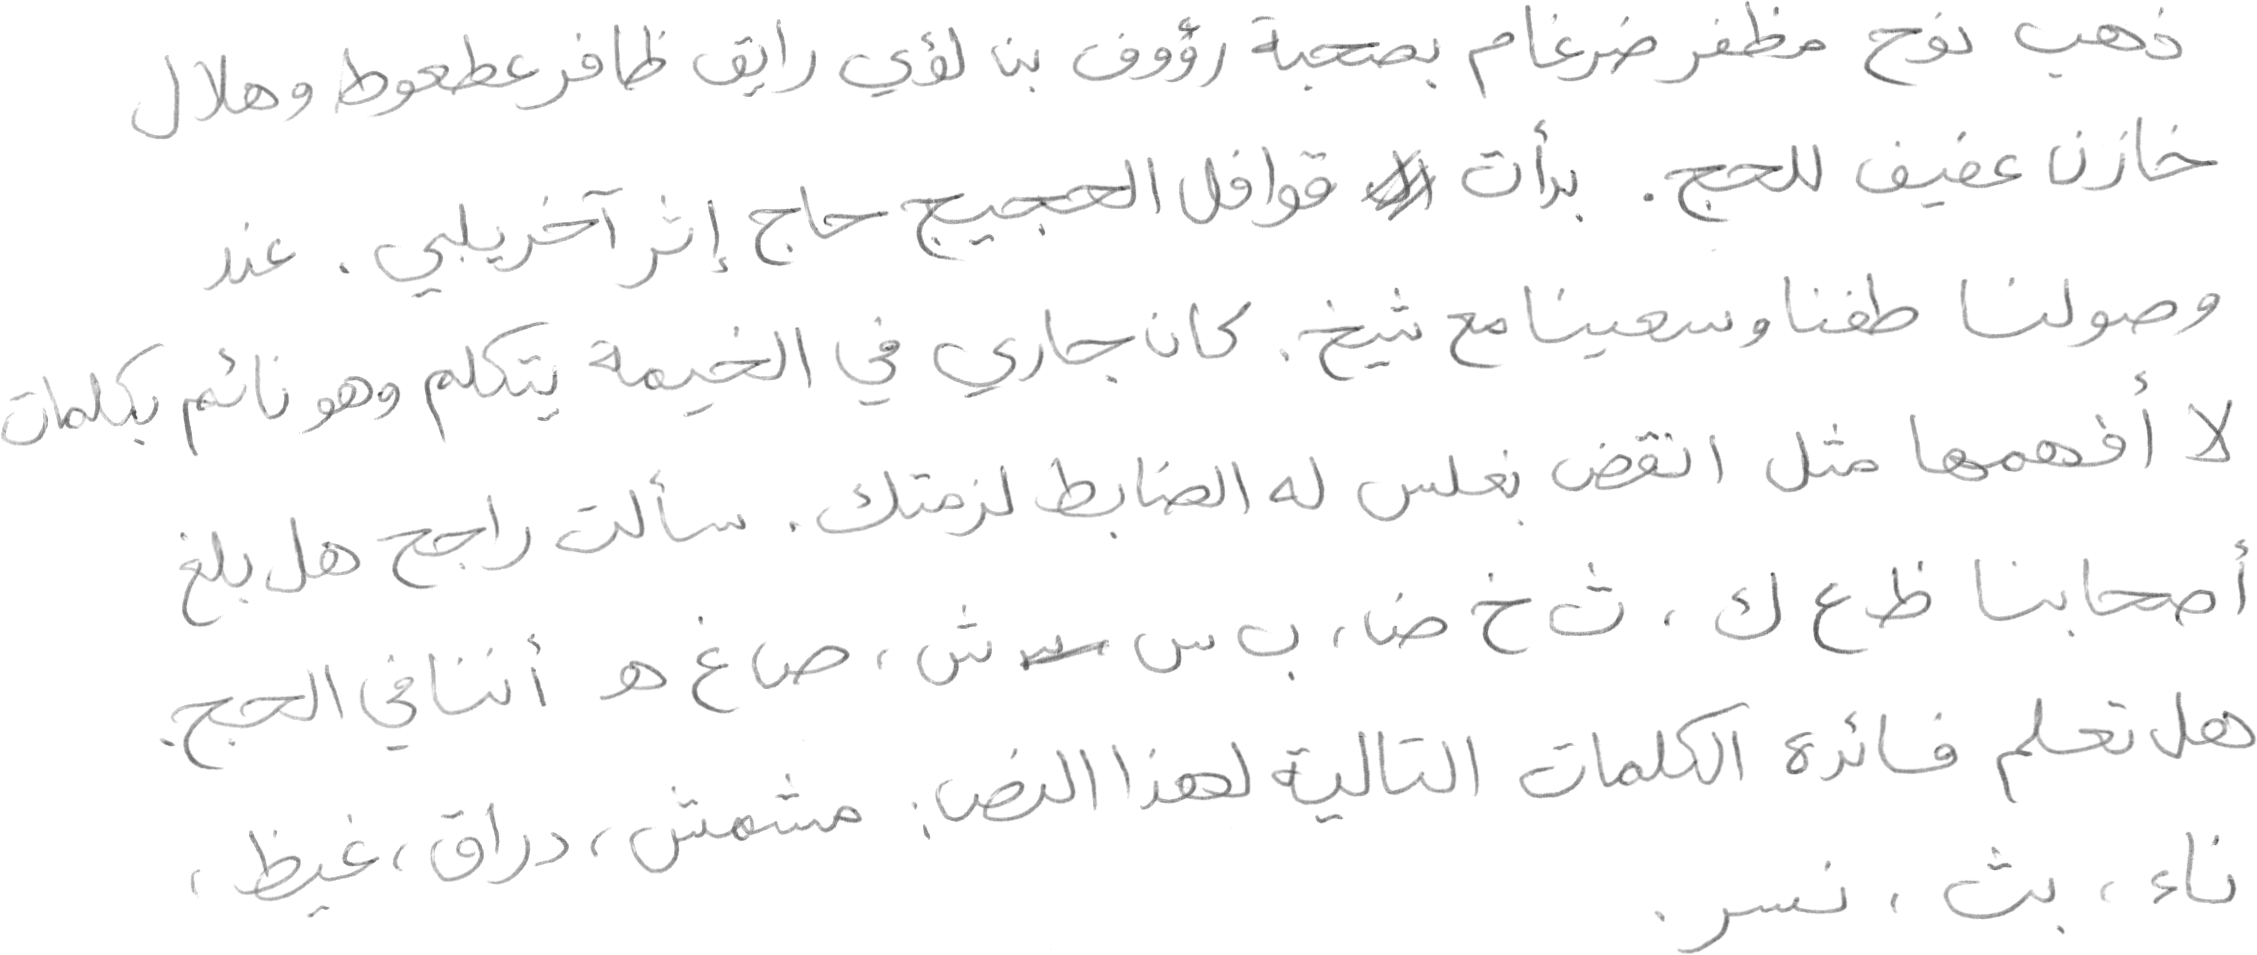 ذهب نوح مظفر ضرغام بصحبة رؤوف بن لؤي رايق ظافر عطعوط وهلال
خازن عفيف للحج. بدأت قوافل الحجيج حاج إثر آخر يلبي. عند
وصولنا طفنا وسعينا مع شيخ. كان جاري في الخيمة يتكلم وهو نائم بكلمات
لا أفهمها مثل انقض بغلس له الضابط لزمتك. سألت راجح هل بلغ
أصحابنا ظ ع ك ، ث خ ض، ب س ش ، ص غ هـ أننا في الحج.
هل تعلم فائدة الكلمات التالية لهذا النص: مشمش، دراق، غيظ،
ناء ، بث ، نسر .